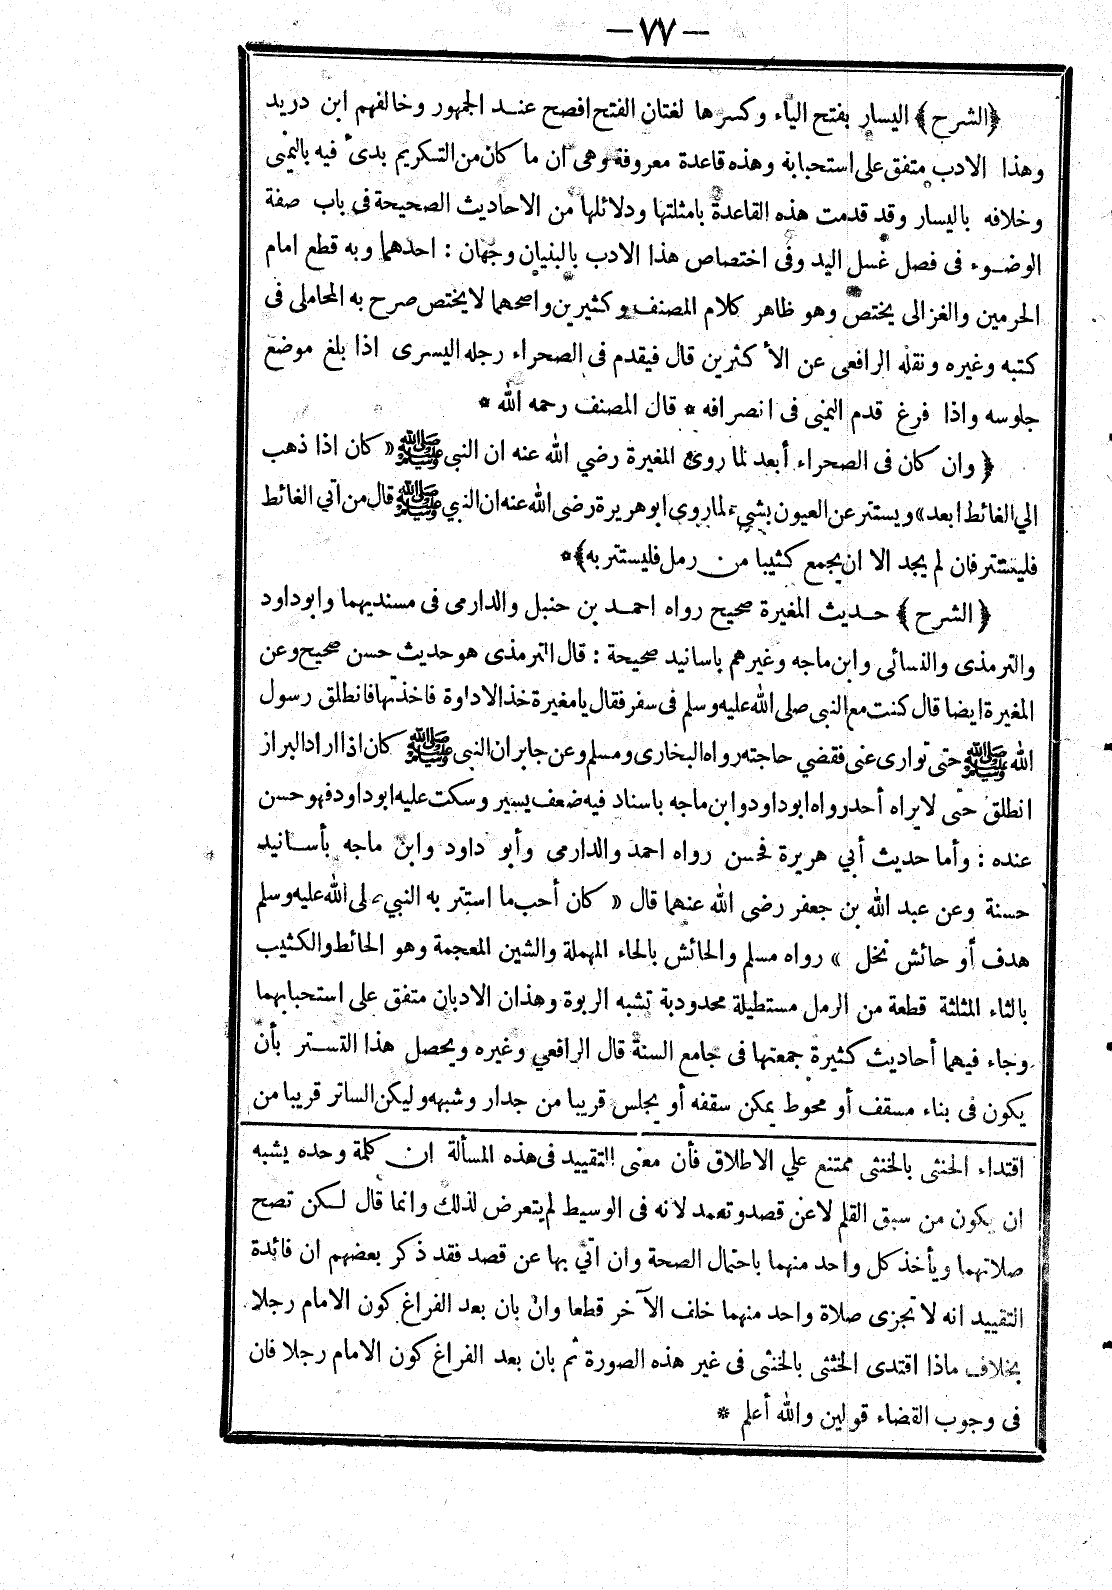 — ٧٧ —
﴿الشرح﴾ اليسار بفتح الياء وكسرها لغتان الفتح افصح عند الجمهور وخالفهم ابن دريد
وهذا الادب متفق على استحبابه وهذه قاعدة معروفة وهى ان ما كان من التكريم بدئ فيه باليمنى
وخلافه باليسار وقد قدمت هذه القاعدة بامثلتها ودلائلها من الاحاديث الصحيحة فى باب صفة
الوضوء فى فصل غسل اليد وفى اختصاص هذا الادب بالبنيان وجهان : احدهما وبه قطع امام
الحرمين والغزالى يختص وهو ظاهر كلام المصنف وكثيرين واصحهما لا يختص صرح به المحاملى فى
كتبه وغيره ونقله الرافعى عن الأكثرين قال فيقدم فى الصحراء رجله اليسرى اذا بلغ موضع
جلوسه واذا فرغ قدم اليمنى فى انصرافه * قال المصنف رحمه الله *
﴿وان كان فى الصحراء أبعد لما روى المغيرة رضي الله عنه ان النبى ﷺ « كان اذا ذهب
الي الغائط ابعد » ويستتر عن العيون بشيء لما روى ابو هريرة رضى الله عنه ان النبي ﷺ قال من اتي الغائط
فليستتر فان لم يجد الا ان يجمع كثيبا من رمل فليستتر به﴾*
﴿الشرح﴾ حديث المغيرة صحيح رواه احمد بن حنبل والدارمى فى مسنديهما وابو داود
والترمذى والنسائى وابن ماجه وغيرهم باسانيد صحيحة : قال الترمذى هو حديث حسن صحيح وعن
المغيرة ايضا قال كنت مع النبى صلى الله عليه وسلم فى سفر فقال يا مغيرة خذ الاداوة فاخذتها فانطلق رسول
الله ﷺ حتى توارى عنى فقضي حاجته رواه البخارى ومسلم وعن جابر ان النبى ﷺ كان اذا اراد البراز
انطلق حتى لا يراه أحد رواه ابو داود وابن ماجه باسناد فيه ضعف يسير وسكت عليه ابو داود فهو حسن
عنده : وأما حديث أبي هريرة فحسن رواه احمد والدارمى وأبو داود وابن ماجه بأسانيد
حسنة وعن عبد الله بن جعفر رضى الله عنهما قال « كان أحب ما استتر به النبي لى الله عليه وسلم
هدف أو حائش نخل » رواه مسلم والحائش بالحاء المهملة والشين المعجمة وهو الحائط والكثيب
بالثاء المثلثة قطعة من الرمل مستطيلة محدودبة تشبه الربوة وهذان الادبان متفق على استحبابهما
وجاء فيهما أحاديث كثيرة جمعتها فى جامع السنة قال الرافعي وغيره ويحصل هذا التستر بأن
يكون فى بناء مسقف أو محوط يمكن سقفه أو يجلس قريبا من جدار وشبهه وليكن الساتر قريبا من
اقتداء الخنثى بالخنثى ممتنع علي الاطلاق فأن معنى التقييد فى هذه المسألة ان كلمة وحده يشبه
ان يكون من سبق القلم لا عن قصد وتعمد لانه فى الوسيط لم يتعرض لذلك وانما قال لكن تصح
صلاتهما ويأخذ كل واحد منهما باحتمال الصحة وان اتي بها عن قصد فقد ذكر بعضهم ان فائدة
التقييد انه لا تجزى صلاة واحد منهما خلف الآخر قطعا وان بان بعد الفراغ كون الامام رجلا
بخلاف ماذا اقتدى الخنثى بالخنثى فى غير هذه الصورة ثم بان بعد الفراغ كون الامام رجلا فان
فى وجوب القضاء قولين والله أعلم *